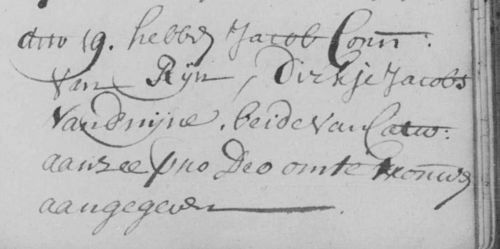 dito 19. hebbē Jacob Corn:
Van Rijn, Dirkje Jacobs
Vanderijne, beide Van Catw:
aan zee pro Deo om te trouwē
aangegeven